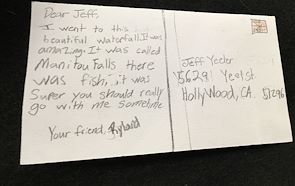 Dear Jeff,
I went to this
beautiful waterfall. It was
amazing. It was called
Manitou Falls there
was fish, it was
Super you should really
go with me sometime
Your friend, Ryland
Jeff Yeeter
56291 Yeet st.
HollyWood, CA. 51296